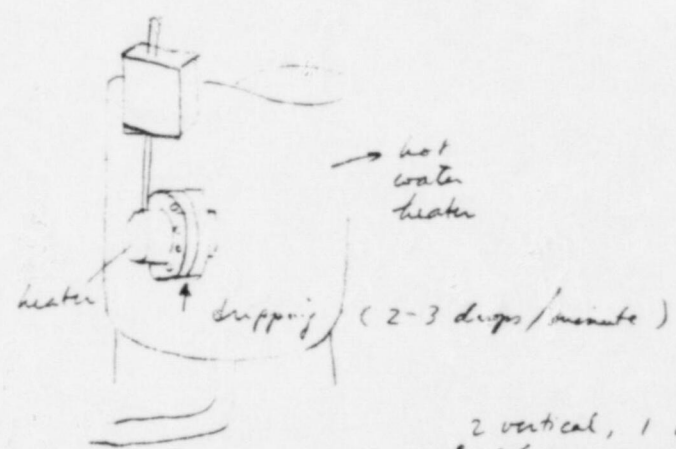 hot
water
heater
heater
dripping (2-3 drops/minute)
2 vertical, 1